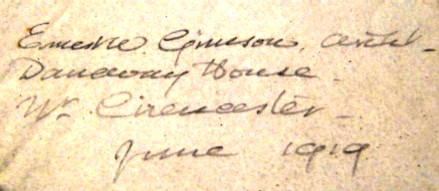 Ernest Gimson, archt.
Daneway House.
Nr. Cirencester.
June 1919